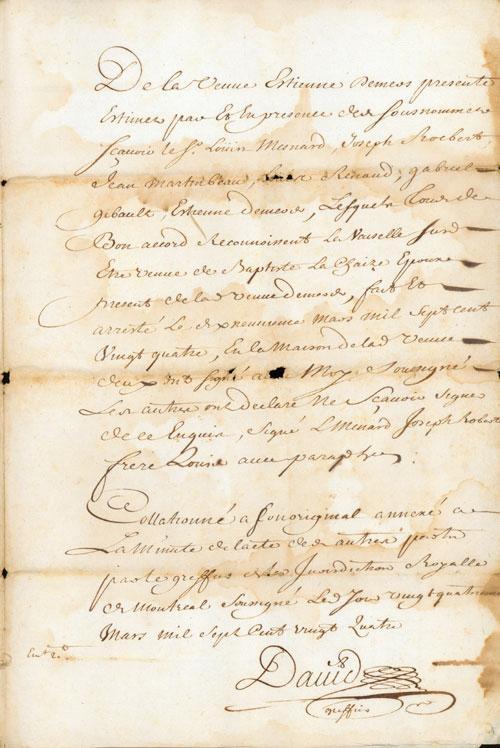 De la veuve Estienne Demers presente
Estimez par Et En presence des sousnommez
scavoir le Sr. Louis Menard, Joseph Roebert
Jean Martinbeau, Renaud, gabriel
gibault, Estienne demers, Lesquels tous de
Bon accord Reconnoissent La Vaiselle surd
Etre venue de Baptiste La Chaize Epoux
present de lad veuve demers, fait Et
arresté Le dixneuvieme mars mil sept cent
Vingt quatre, En la Maison de lad veuve
deux ont signé avec Moy Sousigné
Les autres ont declaré Ne Scavoir signe
de ce Enquis, signé L Menard Joseph Robert
frere Louis avec paraphes.
Collationné a son original annexé a
La Minute de lacte des autres parts
par le greffier de la Jurisdiction Royalle
de Montreal Sousigné Le Jour vingt quatrieme
Mars mil sept Cent vingt Quatre
David
greffier